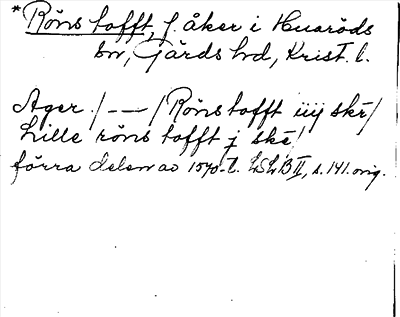 *Röns tofft, f. åker i Huaröds
sn, Gärds hd, Krist. l.
Ager /— — —/ Röns tofft iiij skē /
Lille röns tofft j skē /
förra delen av 1570-t. LSLB II, s. 141. orig.